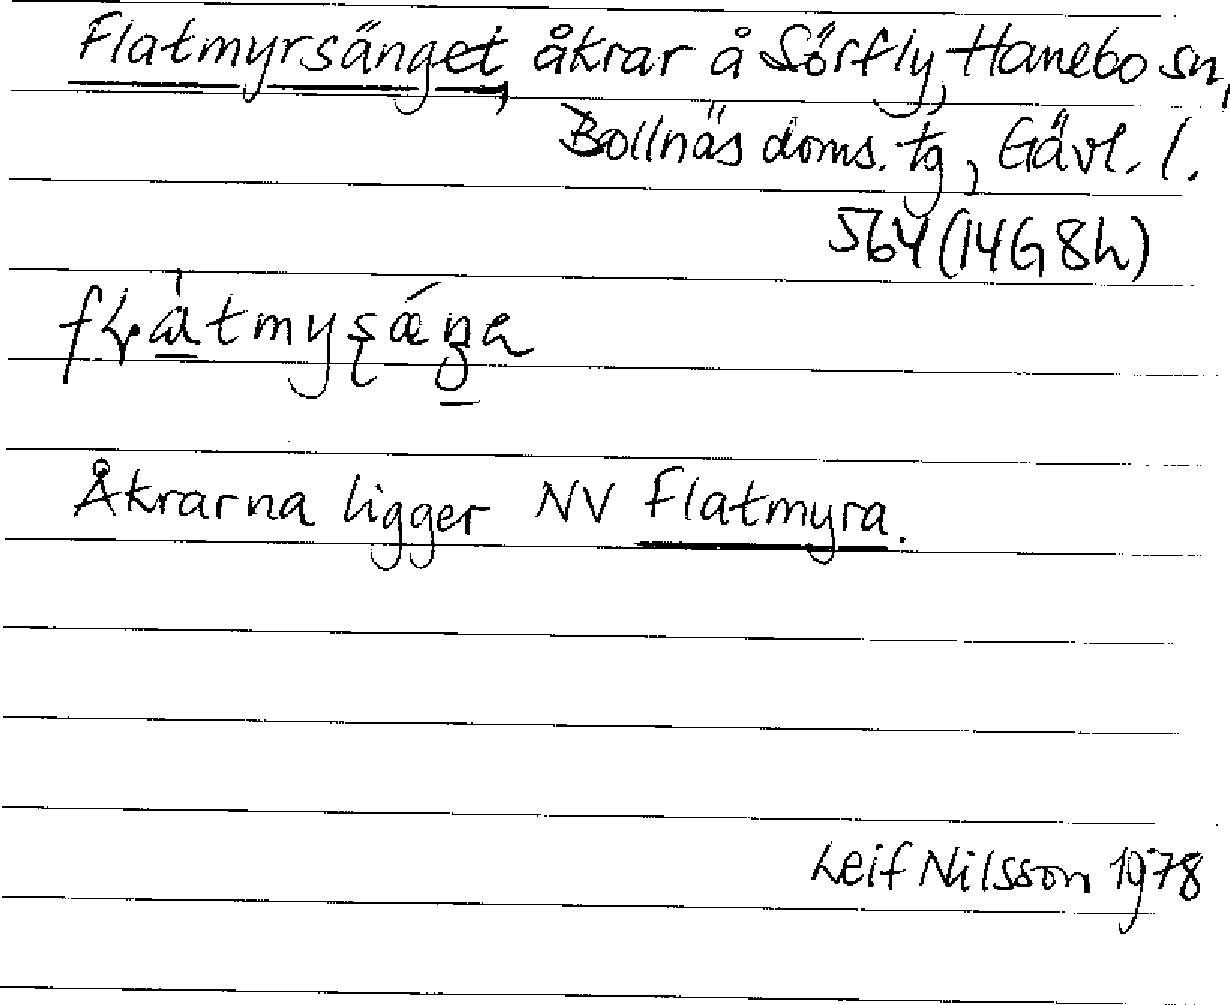 Flatmyrsänget, åkrar å Sörfly, Hanebo sn,
Bollnäs doms. tg, Gävl. l.
564 (14G 8h)
Åkrarna ligger NV Flatmyra.
Leif Nilsson 1978